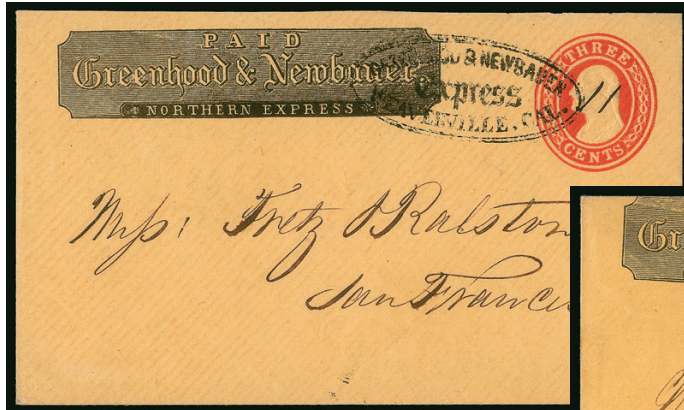 PAID
Greenhood & Newbauer.
NORTHERN EXPRESS
& NEWBAUER
Express
CAL.
THREE
CENTS
11
Mess: Fretz & Ralston
San Franci
Gr